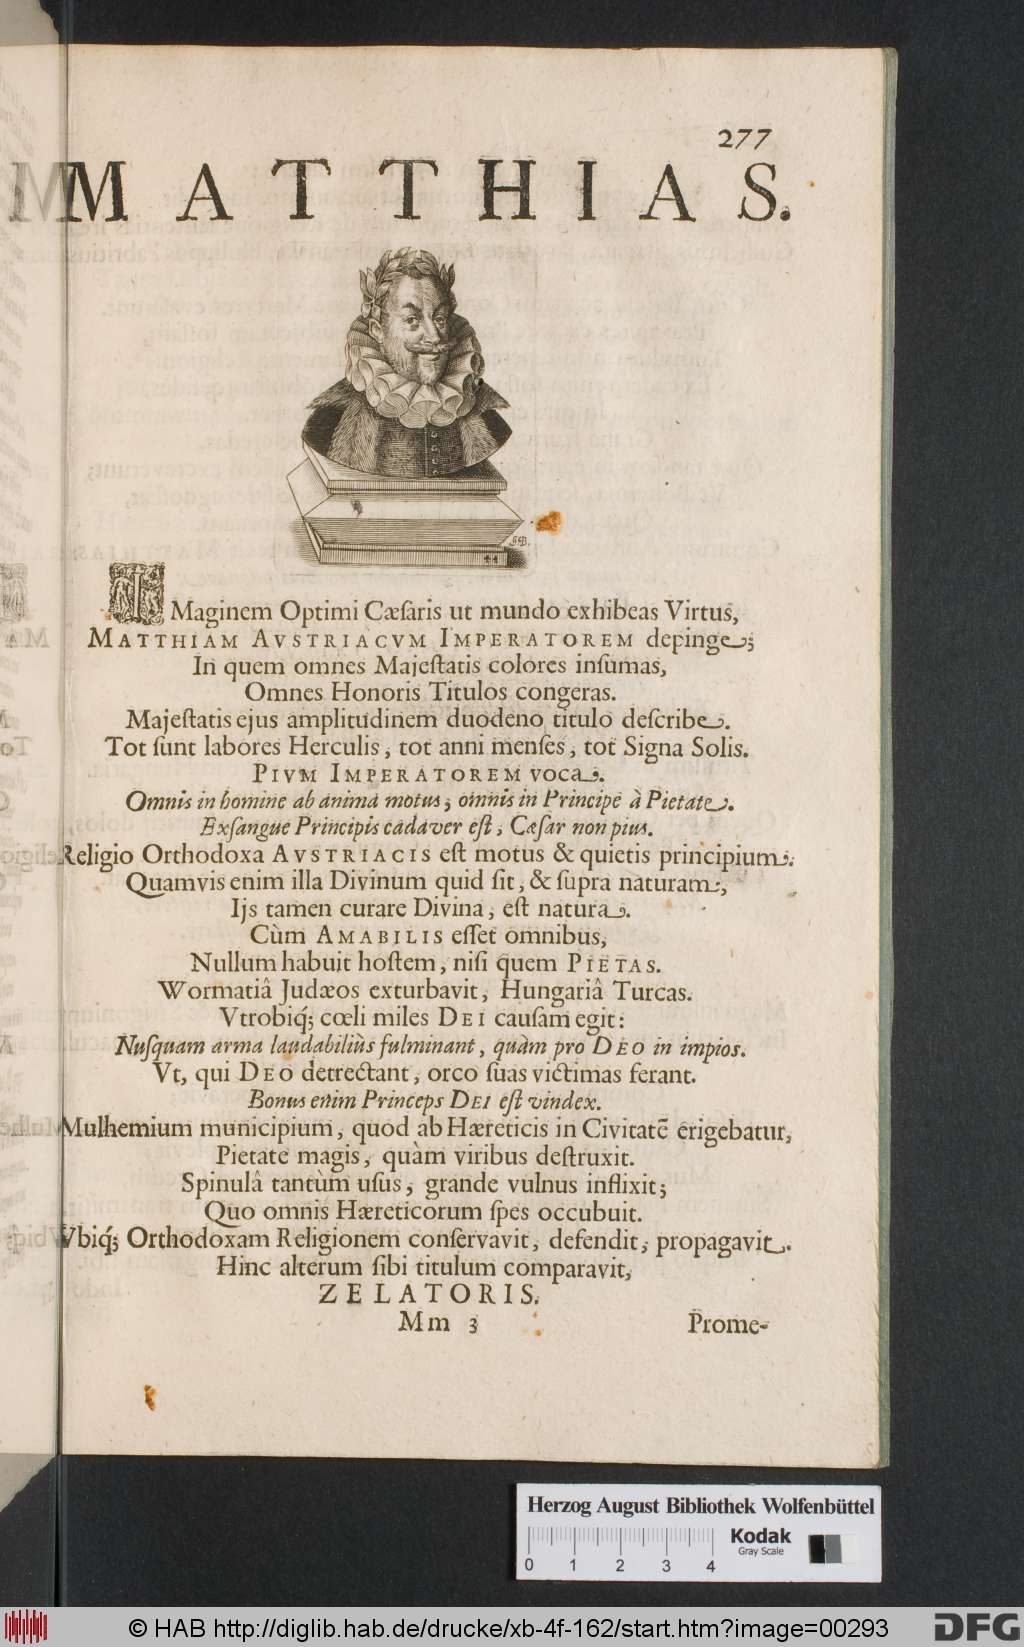 277
MATTHIAS.
IMaginem Optimi Cæſaris ut mundo exhibeas Virtus,
MATTHIAM AVSTRIACVM IMPERATOREM depinge;
In quem omnes Majeſtatis colores inſumas,
Omnes Honoris Titulos congeras.
Majeſtatis ejus amplitudinem duodeno titulo deſcribe.
Tot ſunt labores Herculis, tot anni menſes, tot Signa Solis.
PIVM IMPERATOREM voca.
Omnis in homine ab anima motus; omnis in Principe à Pietate.
Exſangue Principis cadaver eſt, Cæſar non pius.
Religio Orthodoxa AVSTRIACIS eſt motus & quietis principium.
Quamvis enim illa Divinum quid ſit, & ſupra naturam,
Ijs tamen curare Divina, eſt natura.
Cùm AMABILIS eſſet omnibus,
Nullum habuit hoſtem, niſi quem PIETAS.
Wormatiâ Judæos exturbavit, Hungariâ Turcas.
Vtrobiq́; cœli miles DEI cauſam egit:
Nuſquam arma laudabiliùs fulminant, quàm pro DEO in impios.
Vt, qui DEO detrectant, orco ſuas victimas ferant.
Bonus enim Princeps DEI eſt vindex.
Mulhemium municipium, quod ab Hæreticis in Civitatē erigebatur,
Pietate magis, quàm viribus deſtruxit.
Spinulâ tantùm uſus, grande vulnus inflixit;
Quo omnis Hæreticorum ſpes occubuit.
Vbiq́; Orthodoxam Religionem conſervavit, defendit, propagavit.
Hinc alterum ſibi titulum comparavit,
ZELATORIS.
Mm 3 Prome-
Herzog August Bibliothek Wolfenbüttel
0 1 2 3 4
Kodak
Gray Scale
© HAB http://diglib.hab.de/drucke/xb-4f-162/start.htm?image=00293
DFG